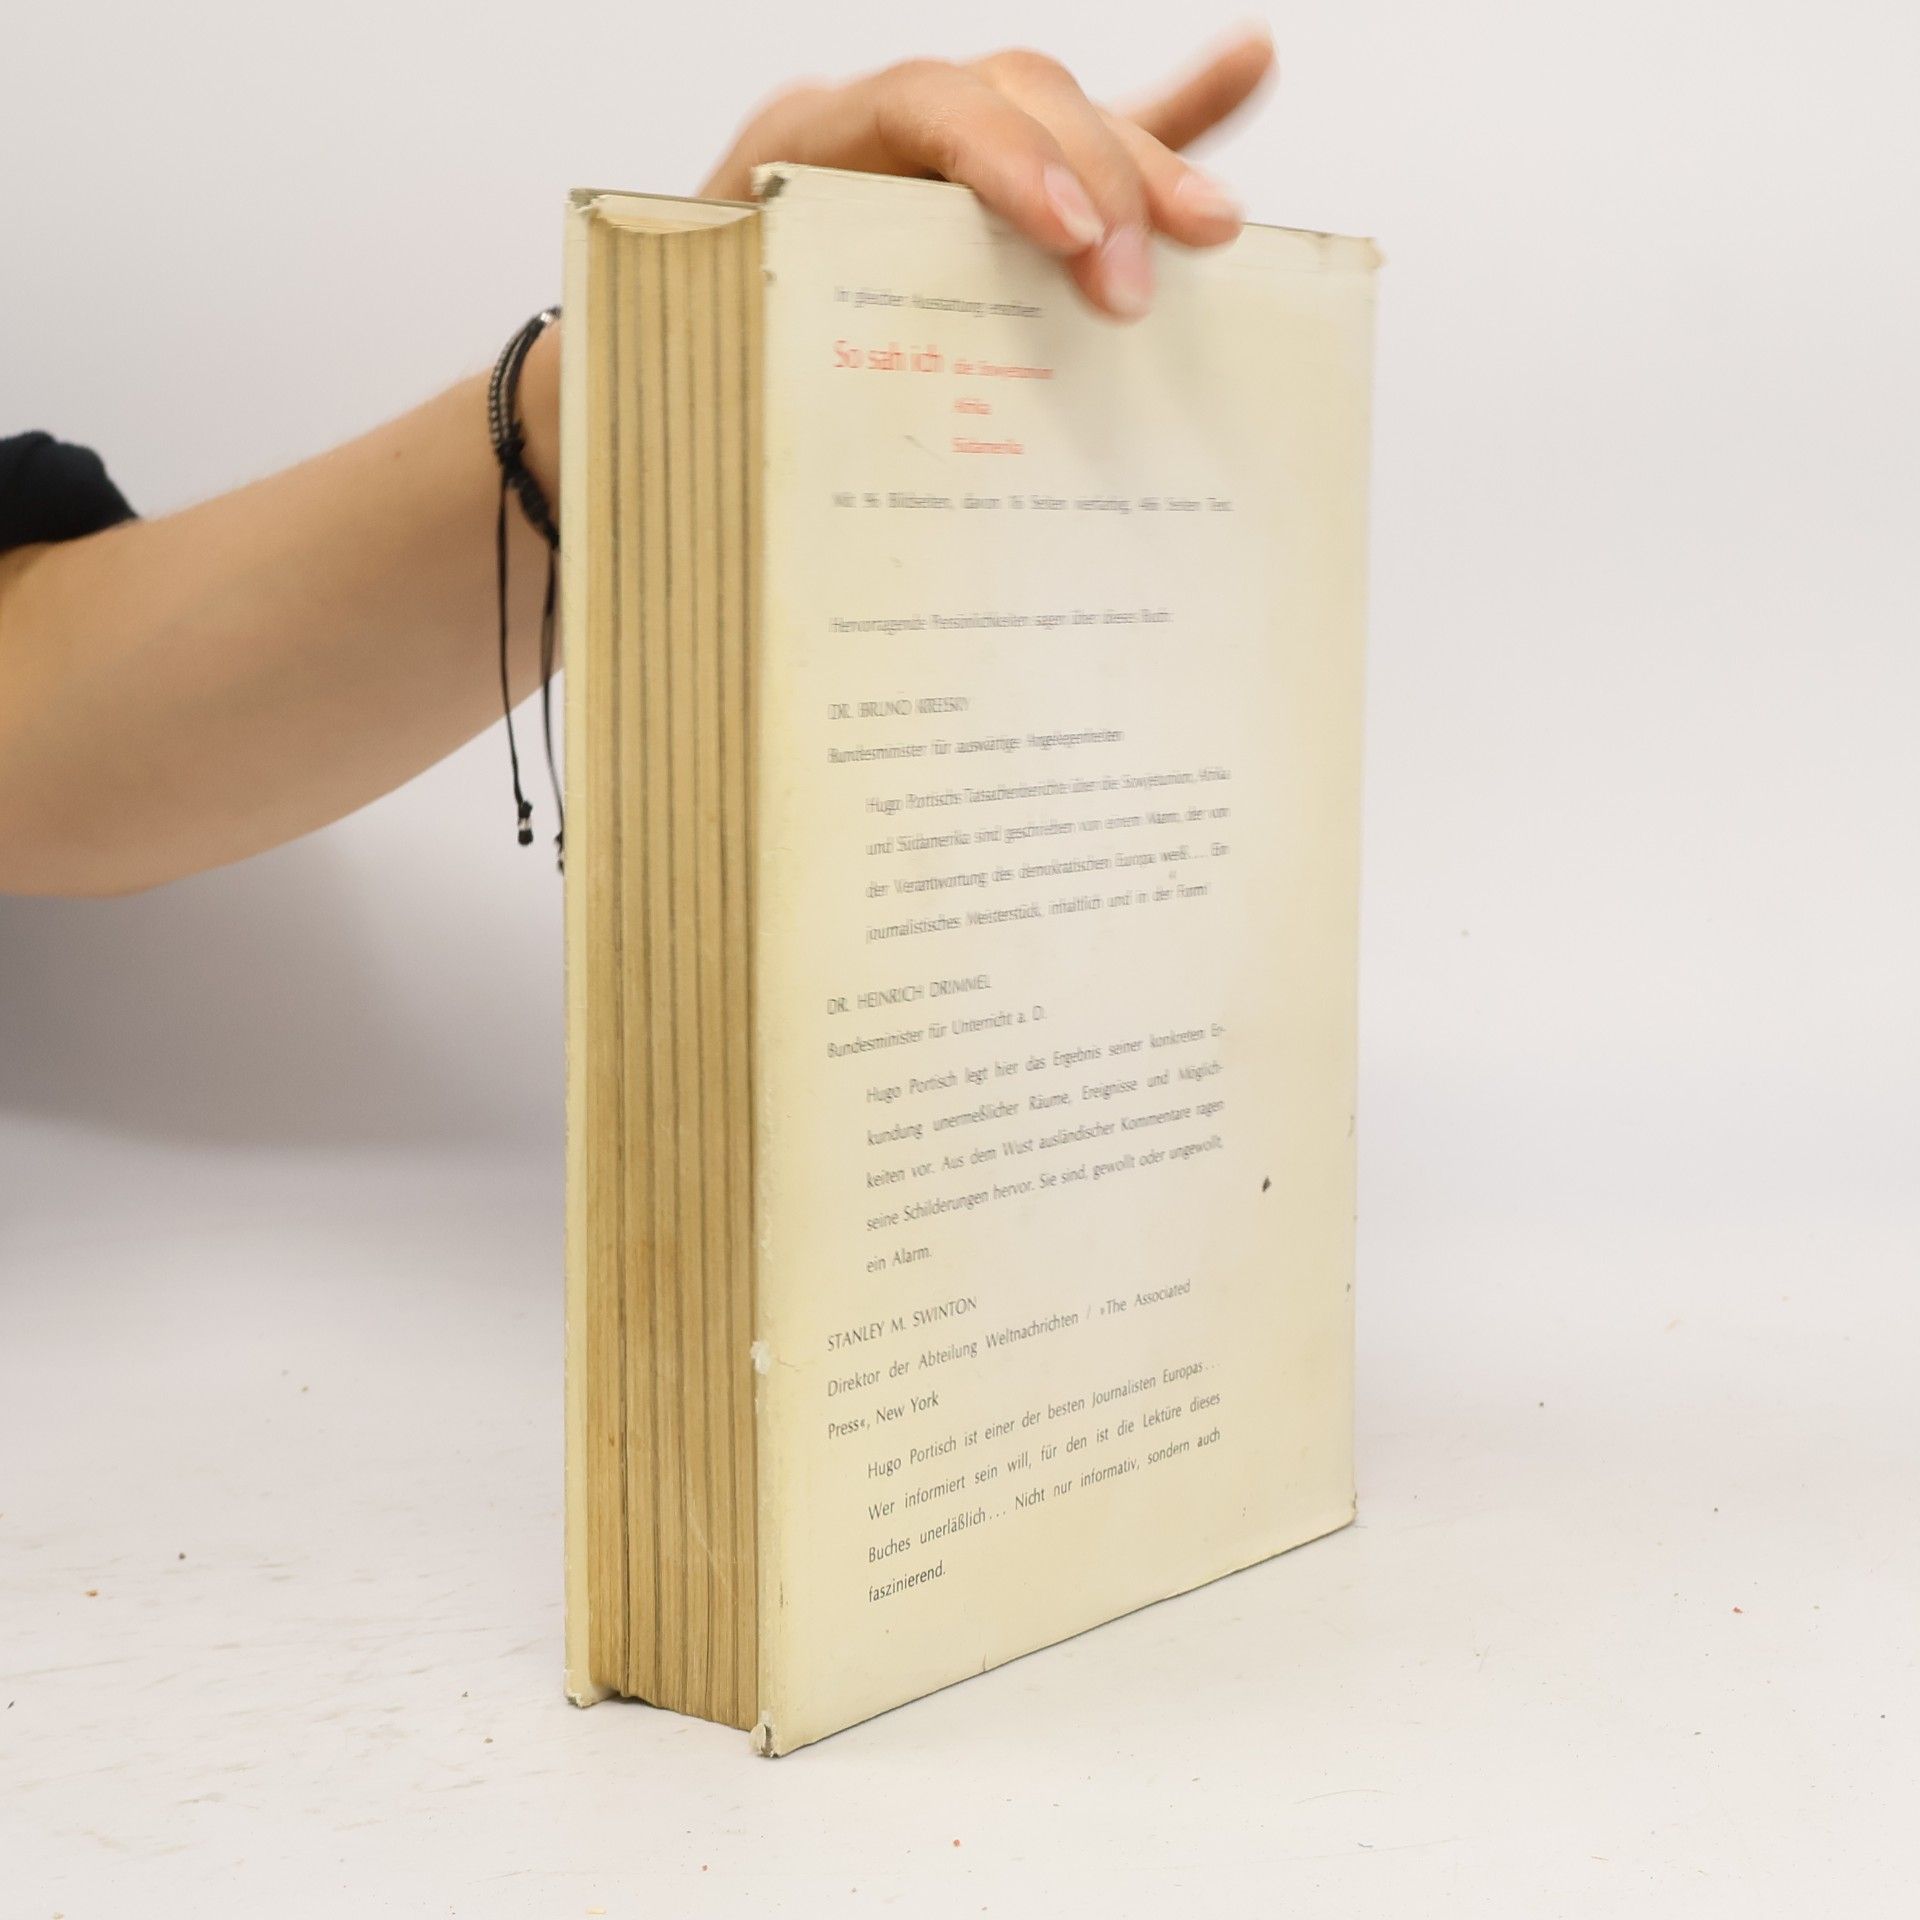 In gleicher Ausstattung erschien:
So sah ich die Sowjetunion
Afrika
Südamerika
Mit 96 Bildseiten, davon 16 Seiten vierfarbig, Seiten Text.
Hervorragende Persönlichkeiten sagen über dieses Buch:
DR. BRUNO KREISKY
Bundesminister für auswärtige Angelegenheiten
Hugo Portischs Tatsachenberichte über die Sowjetunion, Afrika
und Südamerika sind geschrieben von einem Mann, der von
der Verantwortung des demokratischen Europa weiß.... Ein
journalistisches Meisterstück, inhaltlich und in der Form!
DR. HEINRICH DRIMMEL
Bundesminister für Unterricht a. D.
Hugo Portisch legt hier das Ergebnis seiner konkreten Er-
kundung unermeßlicher Räume, Ereignisse und Möglich-
keiten vor. Aus dem Wust ausländischer Kommentare ragen
seine Schilderungen hervor. Sie sind, gewollt oder ungewollt,
ein Alarm.
STANLEY M. SWINTON
Direktor der Abteilung Weltnachrichten / »The Associated
Press«, New York
Hugo Portisch ist einer der besten Journalisten Europas...
Wer informiert sein will, für den ist die Lektüre dieses
Buches unerläßlich... Nicht nur informativ, sondern auch
faszinierend.